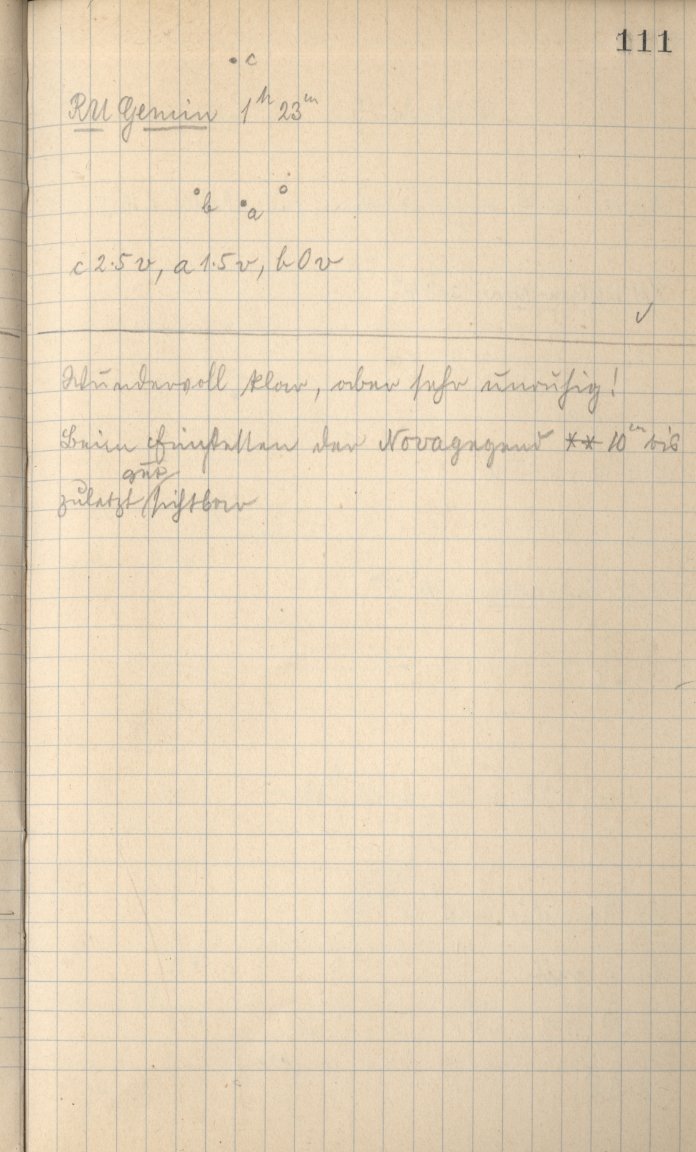 111
c
RU Gemin 1h 23m
b a
c 2.5 v, a 1.5 v, b 0 v
Wundervoll klar, aber sehr unruhig!
Beim Einstellen der Novagegend ** 10m bis
gut
zuletzt sichtbar